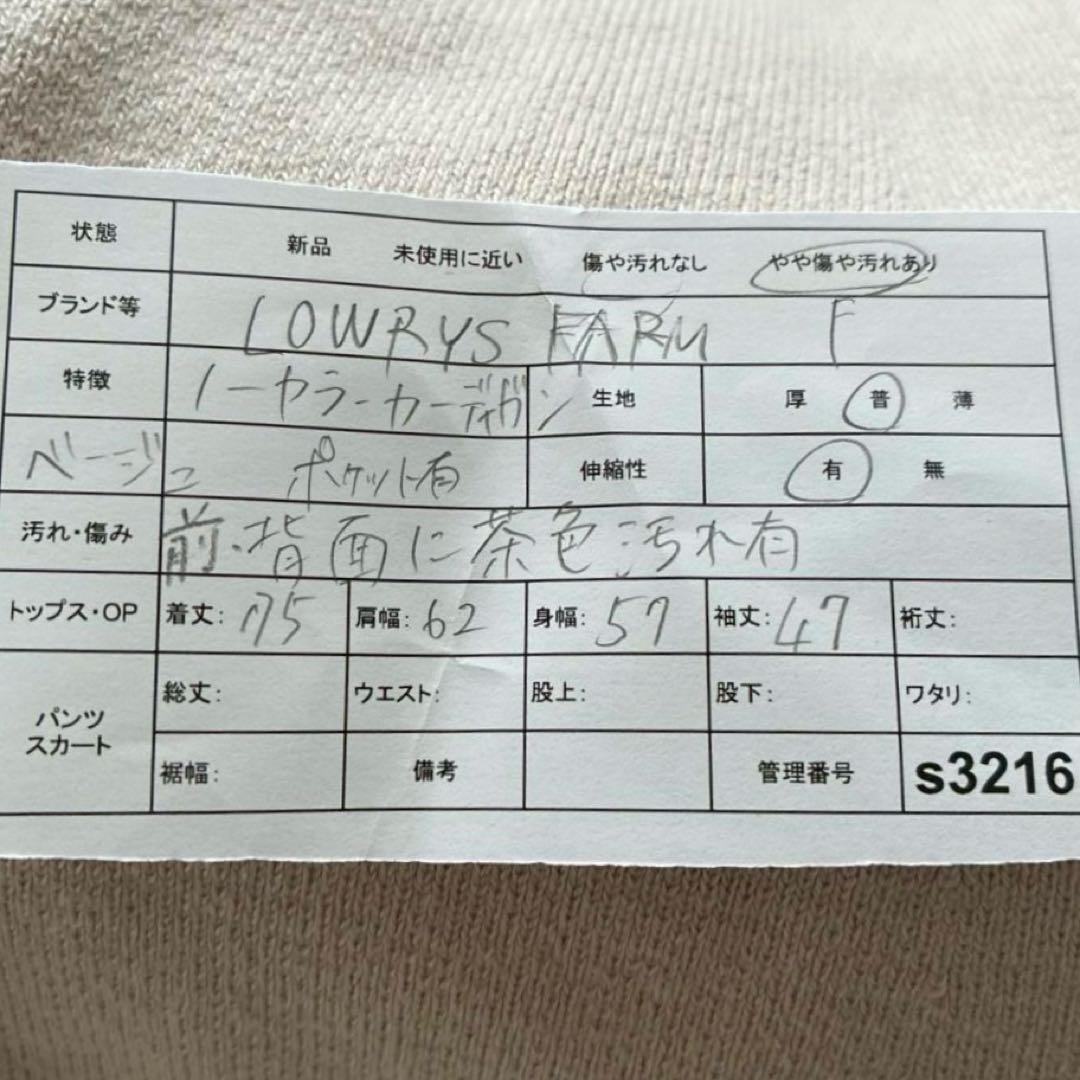 状態 新品 未使用に近い 傷や汚れなし やや傷や汚れあり
ブランド等 LOWRYS FARM F
特徴 ノーカラーカーディガン 生地 厚 普 薄
ベージュ ポケット有 伸縮性 有 無
汚れ・傷み 前・背面に茶色汚れ有
トップス・OP 着丈: 75 肩幅: 62 身幅: 57 袖丈: 47 裄丈:
パンツ 総丈: ウエスト: 股上: 股下: ワタリ:
スカート 裾幅: 備考 管理番号 s3216